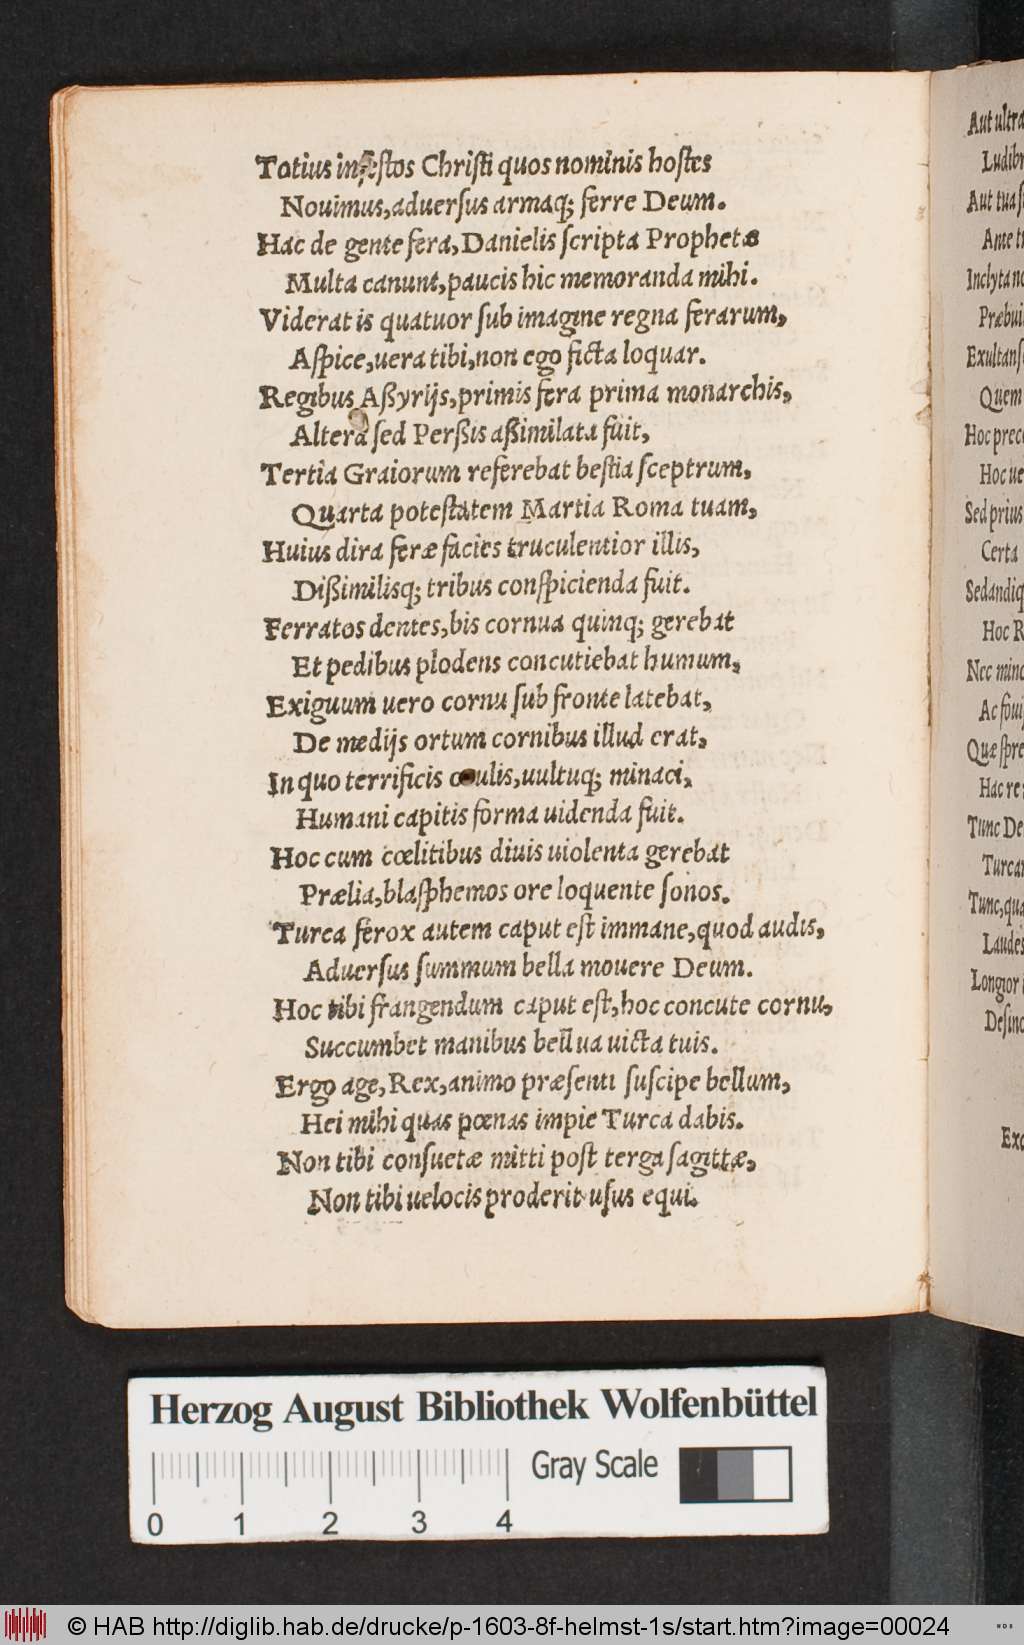 Totius infestos Christi quos nominis hostes
Nouimus, aduersus armaq; ferre Deum.
Hac de gente fera, Danielis scripta Prophetæ
Multa canunt, paucis hic memoranda mihi.
Viderat is quatuor sub imagine regna ferarum,
Aspice, uera tibi, non ego ficta loquar.
Regibus Aßyrijs, primis fera prima monarchis,
Altera sed Perßis aßimilata fuit,
Tertia Graiorum referebat bestia sceptrum,
Quarta potestatem Martia Roma tuam,
Huius dira feræ facies truculentior illis,
Dißimilisq; tribus conspicienda fuit.
Ferratos dentes, bis cornua quinq; gerebat
Et pedibus plodens concutiebat humum,
Exiguum uero cornu sub fronte latebat,
De medijs ortum cornibus illud erat,
In quo terrificis oculis, uultuq; minaci,
Humani capitis forma uidenda fuit.
Hoc cum cœlitibus diuis uiolenta gerebat
Prælia, blasphemos ore loquente sonos.
Turca ferox autem caput est immane, quod audis,
Aduersus summum bella mouere Deum.
Hoc tibi frangendum caput est, hoc concute cornu,
Succumbet manibus bellua uicta tuis.
Ergo age, Rex, animo præsenti suscipe bellum,
Hei mihi quas pœnas impie Turca dabis.
Non tibi consuetæ mitti post terga sagittæ,
Non tibi uelocis proderit usus equi.
Aut ultra
Ludibr
Aut tua s
Ante t
Inclyta no
Præbui
Exultans
Quem
Hoc prec
Hoc ue
Sed prius
Certa
Sedandiq
Hoc R
Nec minc
Ac foui
Quæ spre
Hac re
Tunc De
Turcar
Tunc, qua
Laudes
Longior
Desinc
Exc
Herzog August Bibliothek Wolfenbüttel
Gray Scale
0 1 2 3 4
© HAB http://diglib.hab.de/drucke/p-1603-8f-helmst-1s/start.htm?image=00024